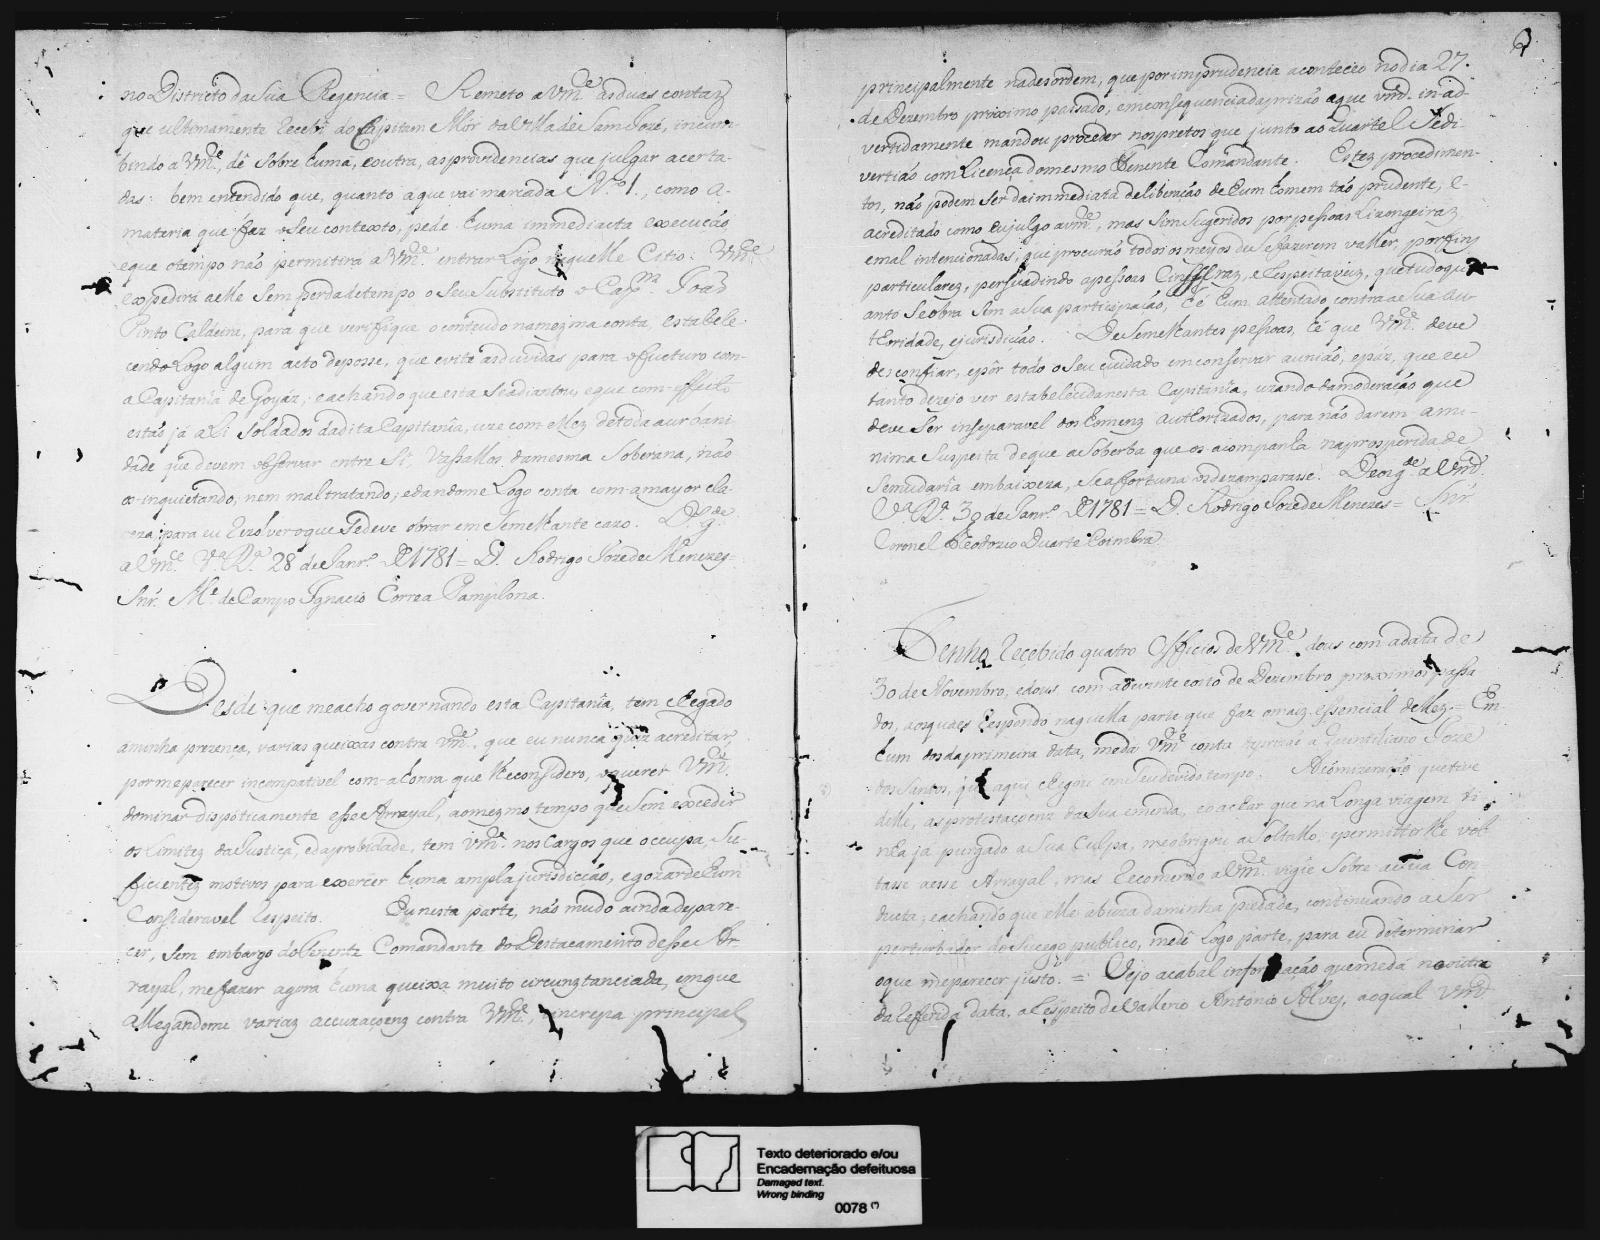 no Districto da Sua Regencia = Remeto a Vm.ce as duas contas
que ultimamente recebi do Capitam Mór da Villa de Sam Jozé, incum-
bindo a Vm.ce, dê sobre huma, e outra, as providencias que julgar acerta-
das: bem entendido que, quanto a que vai marcada N.o 1., como a
materia que faz o Seu contexto, pede huma immediacta execução,
e que o tempo não permitirá a Vm.ce entrar Logo naquelle Citio: Vm.ce
expedirá a elle Sem perda de tempo o Seu Substituto o Cap.m João
Pinto Caldeira, para que verifique o contéudo na mezma conta, estabele-
cendo Logo algum acto de posse, que evite as duvidas para o fucturo com
a Capitania de Goyáz; e achando que esta Se adiantou, e que com effeito
estão já ali Soldados da dita Capitania, uze com elles de toda a urbani-
dade que devem observar entre Si, Vassallos da mesma Soberana, não
os inquietando, nem maltratando; e dandome Logo conta com a mayor cla-
reza, para eu rezolver o que Se deve obrar em Semelhante cazo. D.s g.de
a Vm.ce V.a R.a 28 de Janr.o de 1781 = D. Rodrigo Joze de Menezes =
Snr. M.e de Campo Ignacio Correa Pamplona.
Desde que me acho governando esta Capitania, tem chegado
a minha prezença, varias queixas contra Vm.ce, que eu nunca quiz acreditar,
por me parecer incompativel com a honra que lhe considero, o querer Vm.ce
dominar dispoticamente esse Arrayal, ao mezmo tempo que Sem exceder
os limites da Justiça, e da probidade, tem Vm.ce nos Cargos que occupa, Su-
ficientes motivos para exercer huma ampla jurisdicção, e gozar de hum
Consideravel respeito. Eu nesta parte, não mudo ainda de pare-
cer, Sem embargo do Tenente Comandante do Destacamento desse Ar-
rayal, me fazer agora huma queixa muito circunztanciada, em que
allegandome varias accuzaçoens contra Vm.ce, increpa principal
principalmente na desordem, que por imprudencia aconteceo no dia 27.
de Dezembro proximo passado, em consequencia da prizão a que Vm.ce in-ad-
vertidamente mandou proceder nos pretos que junto ao Quartel Se di-
vertião com Licença do mesmo Tenente Comandante. Estes procedimen-
tos, não podem Ser da immediata deliberação de hum homem tão prudente, e
acreditado como eu julgo a Vm.ce, mas Sim Sugeridos por pessoas Lizongeiras,
e mal intencionadas, que procurão todos os meyos de Se fazerem valler, por fins
particulares, persuadindo a pessoas Sinceras, e respeitaveis, que tudo qu-
anto Se obra Sem a Sua participação, he hum attentado contra a Sua au-
thoridade, e jurisdicção. De Semelhantes pessoas, he que Vm.ce deve
desconfiar, e pôr todo o Seu cuidado em conservar a união, e páz, que eu
tanto dezejo ver estabelecida nesta Capitania, uzando da moderação que
deve Ser inseparavel dos homens authorizados, para não darem a mi-
nima Suspeita de que a Soberba que os acompanha na prosperidade
Se mudaria em baixeza, Se a fortuna os dezamparasse. Deos g.de a Vm.ce
V.a R.a 30 de Janr.o de 1781 = D. Rodrigo Joze de Menezes = Snr.
Coronel Theodozio Duarte Coimbra
Tenho recebido quatro Officios de Vm.ce, dous com a data de
30 de Novembro, e dous com a de vinte e oito de Dezembro proximos passa
dos, aos quaes respondo naquella parte que faz o mais essencial delles. = Em
hum dos da primeira data, me dá Vm.ce conta da prizão de Quintiliano Joze
dos Santos, que aqui chegou em Seu devido tempo. A comizeração que tive
delle, as protestaçoens da Sua emenda, e o achar que na Longa viagem ti-
nha já purgado a Sua Culpa, me obrigou a Soltallo, e permittirlhe vol-
tasse a esse Arrayal, mas recomendo a Vm.ce vigie Sobre a Sua Con-
ducta; e achando que elle abuza da minha piedade, continuando a Ser
perturbador do Sucego publico, me dê Logo parte, para eu determinar
o que me parecer justo. = Vejo a cabal informação que me dá na outra
da referida data, a respeito de Vallerio Antonio Alvez, ao qual Vm.ce
Texto deteriorado e/ou
Encadernação defeituosa
Damaged text.
Wrong binding
0078 (*)